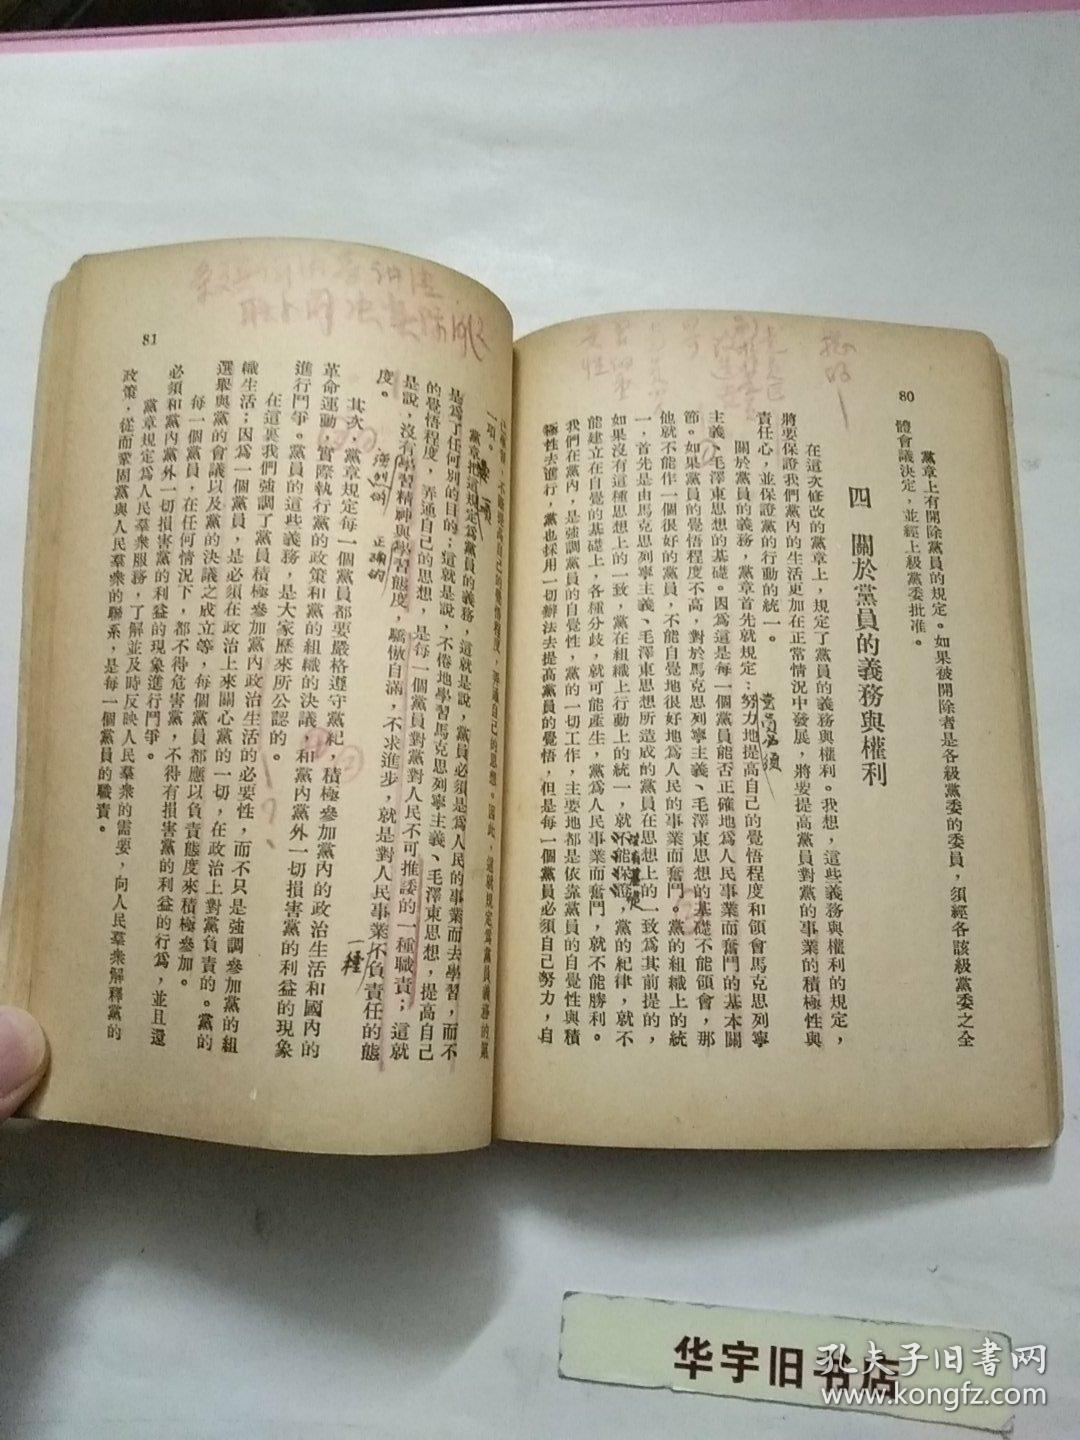 80
體會議決定，並經上級黨委批准。
黨章上有開除黨員的規定。如果被開除者是各級黨委的委員，須經各該級黨委之全
四　關於黨員的義務與權利
在這次修改的黨章上，規定了黨員的義務與權利。我想，這些義務與權利的規定，
將要保證我們黨內的生活更加在正常情況中發展，將要提高黨員對黨的事業的積極性與
責任心，並保證黨的行動的統一。
關於黨員的義務，黨章首先就規定：努力地提高自己的覺悟程度和領會馬克思列寧
主義、毛澤東思想的基礎。因為這是每一個黨員能否正確地為人民事業而奮鬥的基本關
節。如果黨員的覺悟程度不高，對於馬克思列寧主義、毛澤東思想的基礎不能領會，那
他就不能作一個很好的黨員，不能自覺地很好地為人民的事業而奮鬥。黨的組織上的統
一，首先是由馬克思列寧主義、毛澤東思想所造成的黨員在思想上的一致為其前提的，
如果沒有這種思想上的一致，黨在組織上行動上的統一，就不能保證，黨的紀律，就不
能建立在自覺的基礎上，各種分歧，就可能產生，黨為人民事業而奮鬥，就不能勝利。
我們在黨內，是強調黨員的自覺性，黨的一切工作，主要地都是依靠黨員的自覺性與積
極性去進行，黨也採用一切辦法去提高黨員的覺悟，但是每一個黨員必須自己努力，自
81
不斷提高自己的覺悟程度，弄通自己的思想。因此，這就規定為黨員義務的第
一項。
黨章把這規定為黨員的義務，這就是說，黨員必須是為人民的事業而去學習，而不
是為了任何別的目的；這就是說，不倦地學習馬克思列寧主義、毛澤東思想，提高自己
的覺悟程度，弄通自己的思想，是每一個黨員對黨對人民不可推諉的一種職責；這就
是說，沒有學習精神與學習態度，驕傲自滿，不求進步，就是對人民事業不負責任的態
度。
其次，黨章規定每一個黨員都要嚴格遵守黨紀，積極參加黨內的政治生活和國內的
革命運動，實際執行黨的政策和黨的組織的決議，和黨內黨外一切損害黨的利益的現象
進行鬥爭。黨員的這些義務，是大家歷來所公認的。
在這裏我們強調了黨員積極參加黨內政治生活的必要性，而不只是強調參加黨的組
織生活；因為一個黨員，是必須在政治上來關心黨的一切，在政治上對黨負責的。黨的
選舉與黨的會議以及黨的決議之成立等，每個黨員都應以負責態度來積極參加。
每一個黨員，在任何情況下，都不得危害黨，不得有損害黨的利益的行為，並且還
必須和黨內黨外一切損害黨的利益的現象進行鬥爭。
黨章規定為人民羣衆服務，了解並及時反映人民羣衆的需要，向人民羣衆解釋黨的
政策，從而鞏固黨與人民羣衆的聯系，是每一個黨員的職責。
一種
正確的
华宇旧书店
孔夫子旧書网
www.kongfz.com